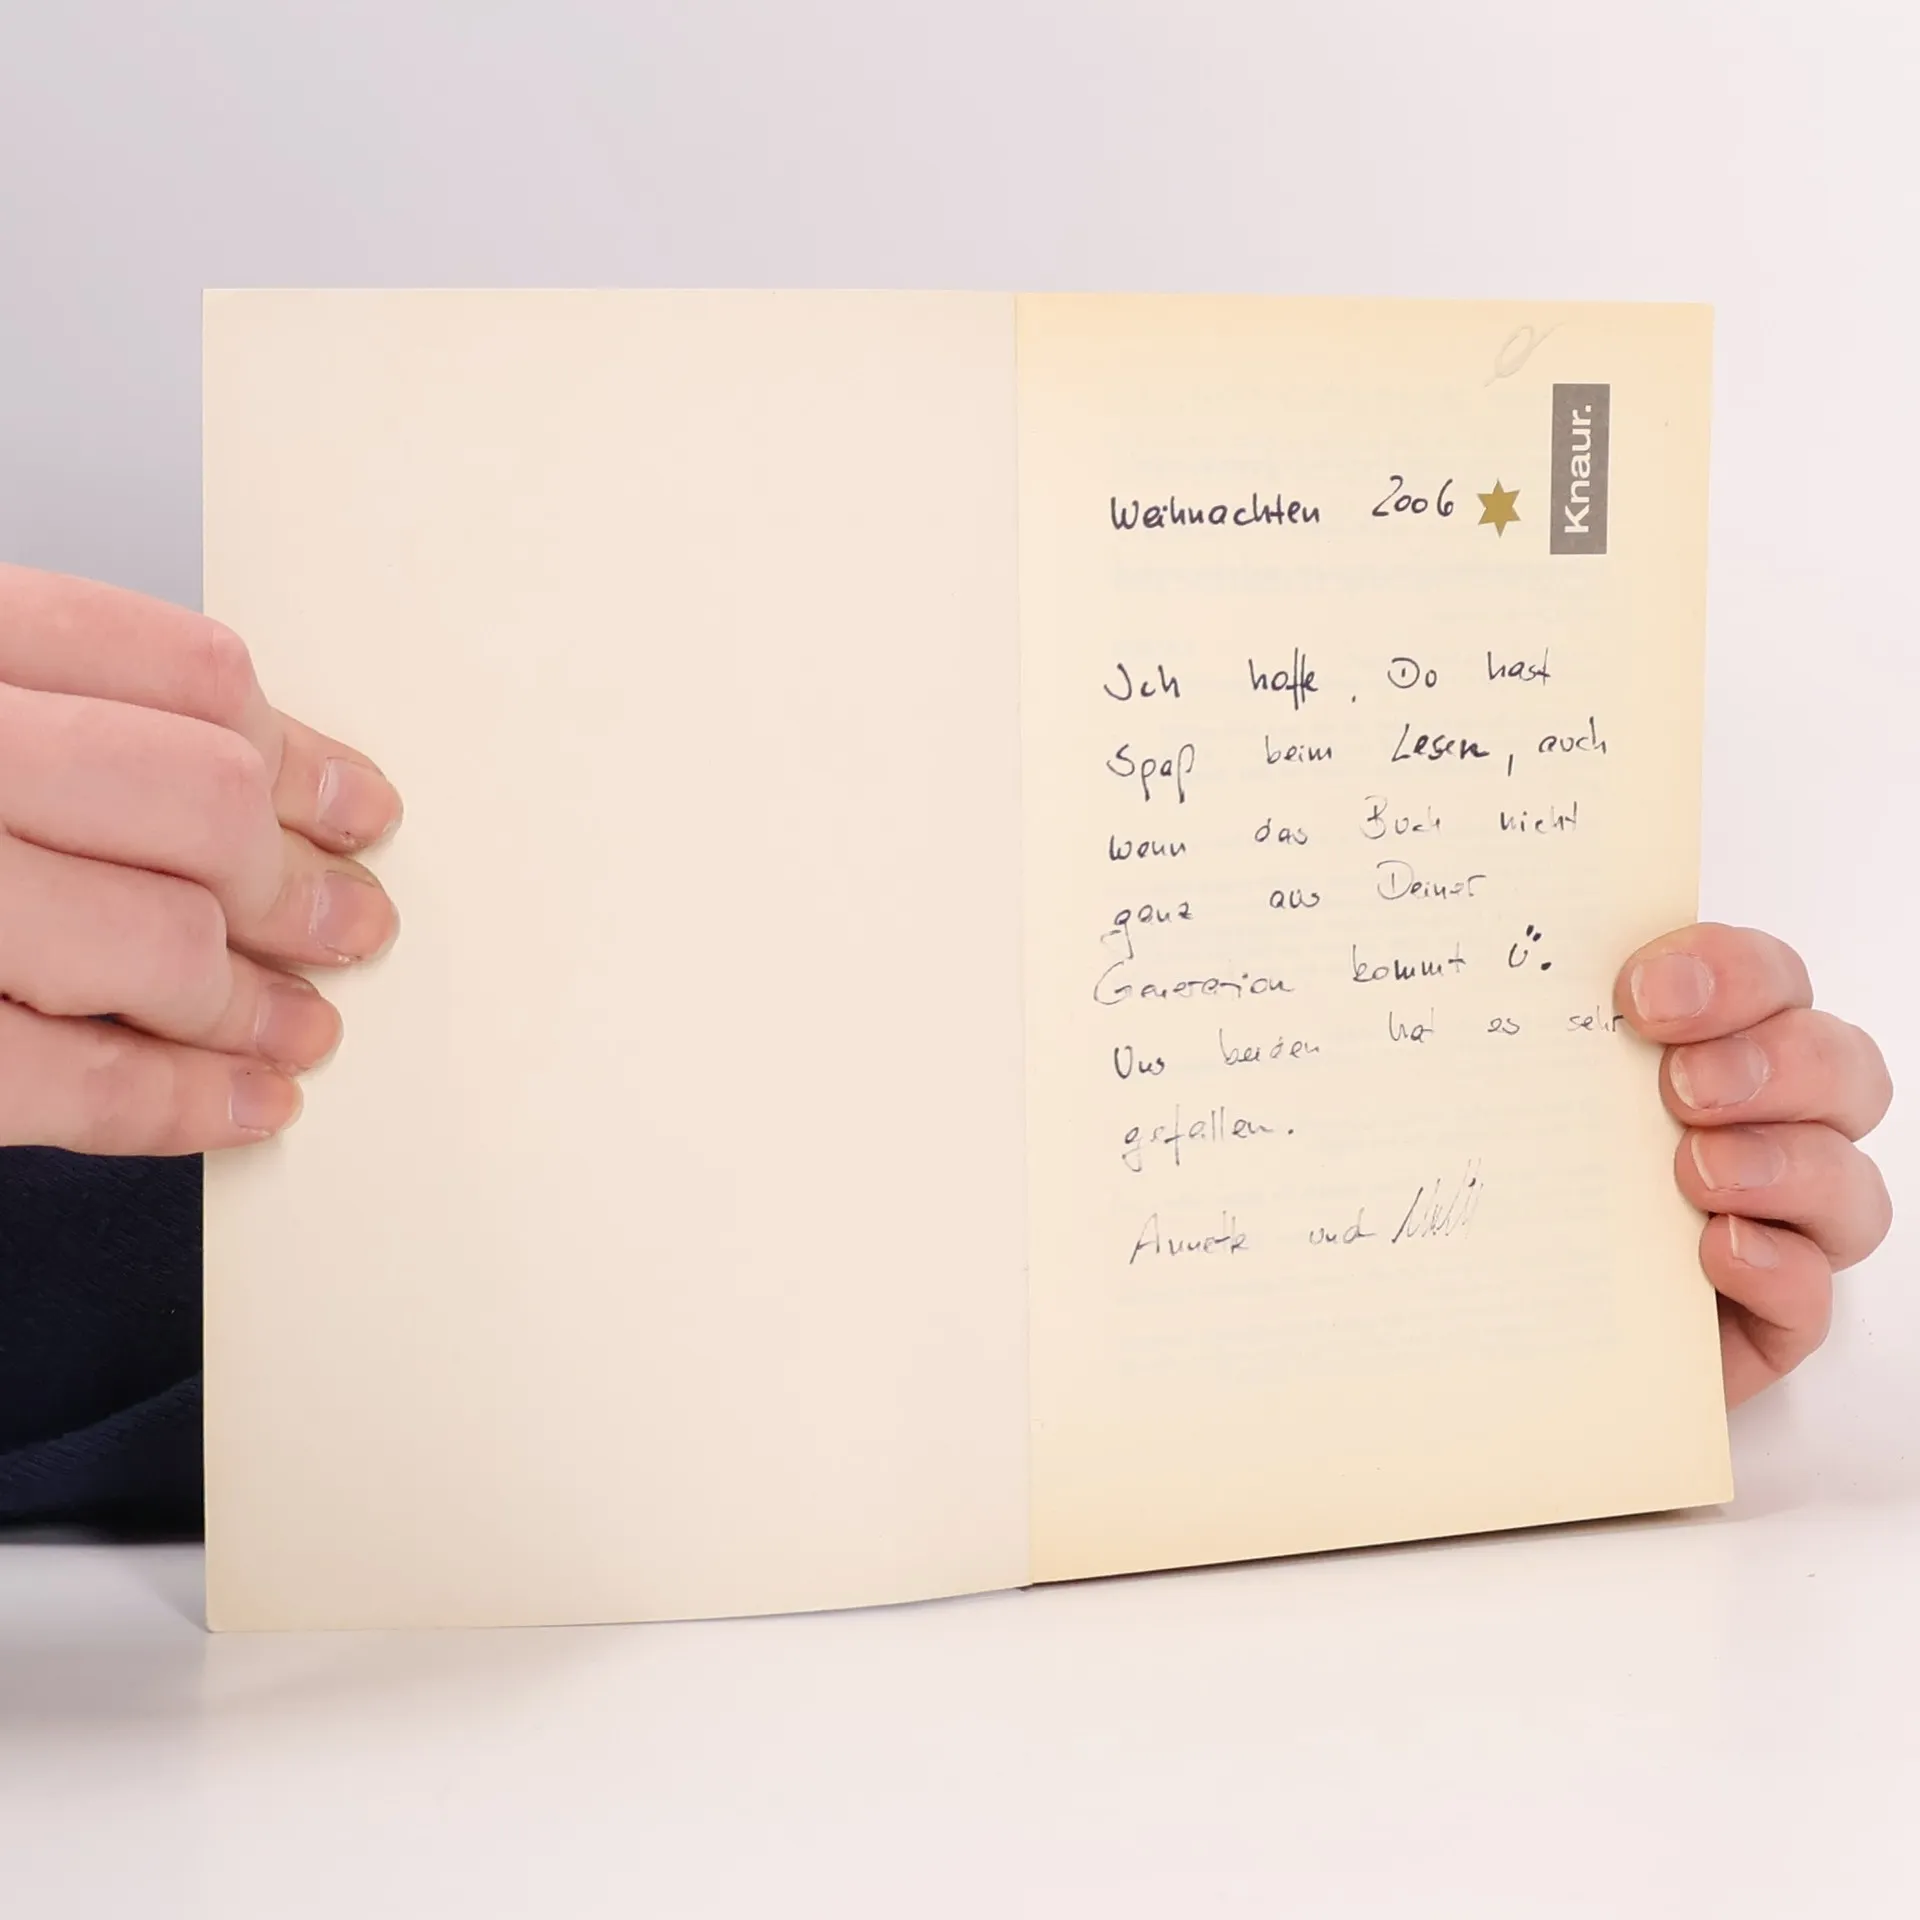 Knaur.
Weihnachten 2006
Ich hoffe, Du hast
Spaß beim Lesen, auch
wenn das Buch nicht
ganz aus Deiner
Generation kommt ü.
Uns beiden hat es sehr
gefallen.
Annette und